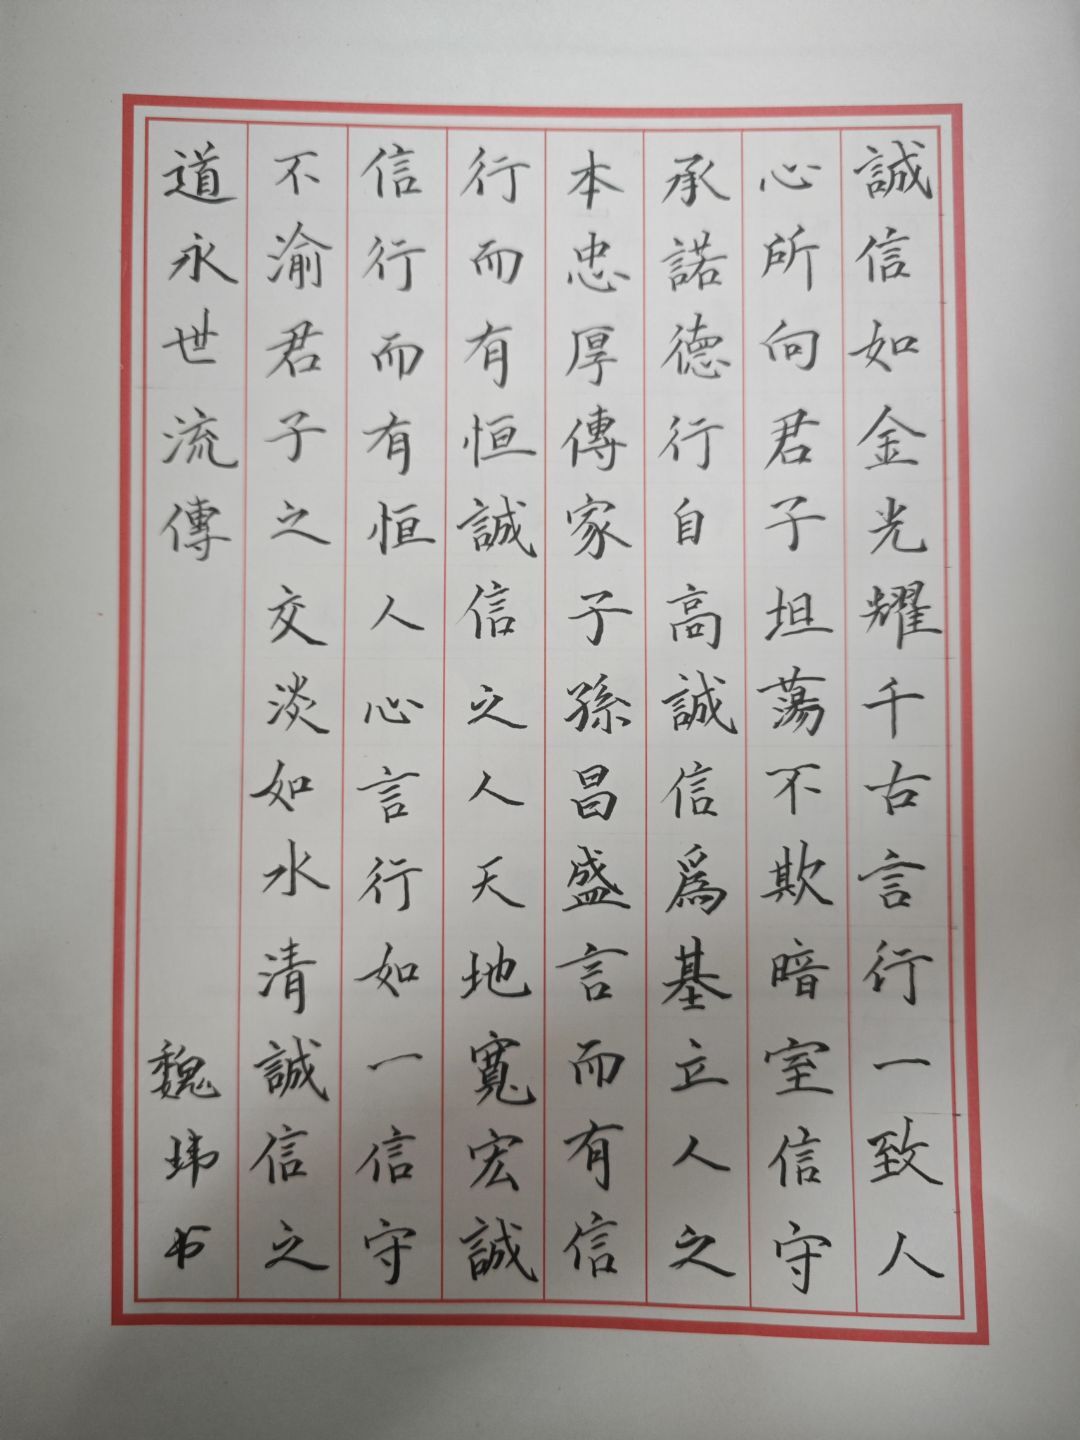 誠信如金光耀千古言行一致人
心所向君子坦蕩不欺暗室信守
承諾德行自高誠信爲基立人之
本忠厚傳家子孫昌盛言而有信
行而有恒誠信之人天地寬宏誠
信行而有恒人心言行如一信守
不渝君子之交淡如水清誠信之
道永世流傳 魏玮书